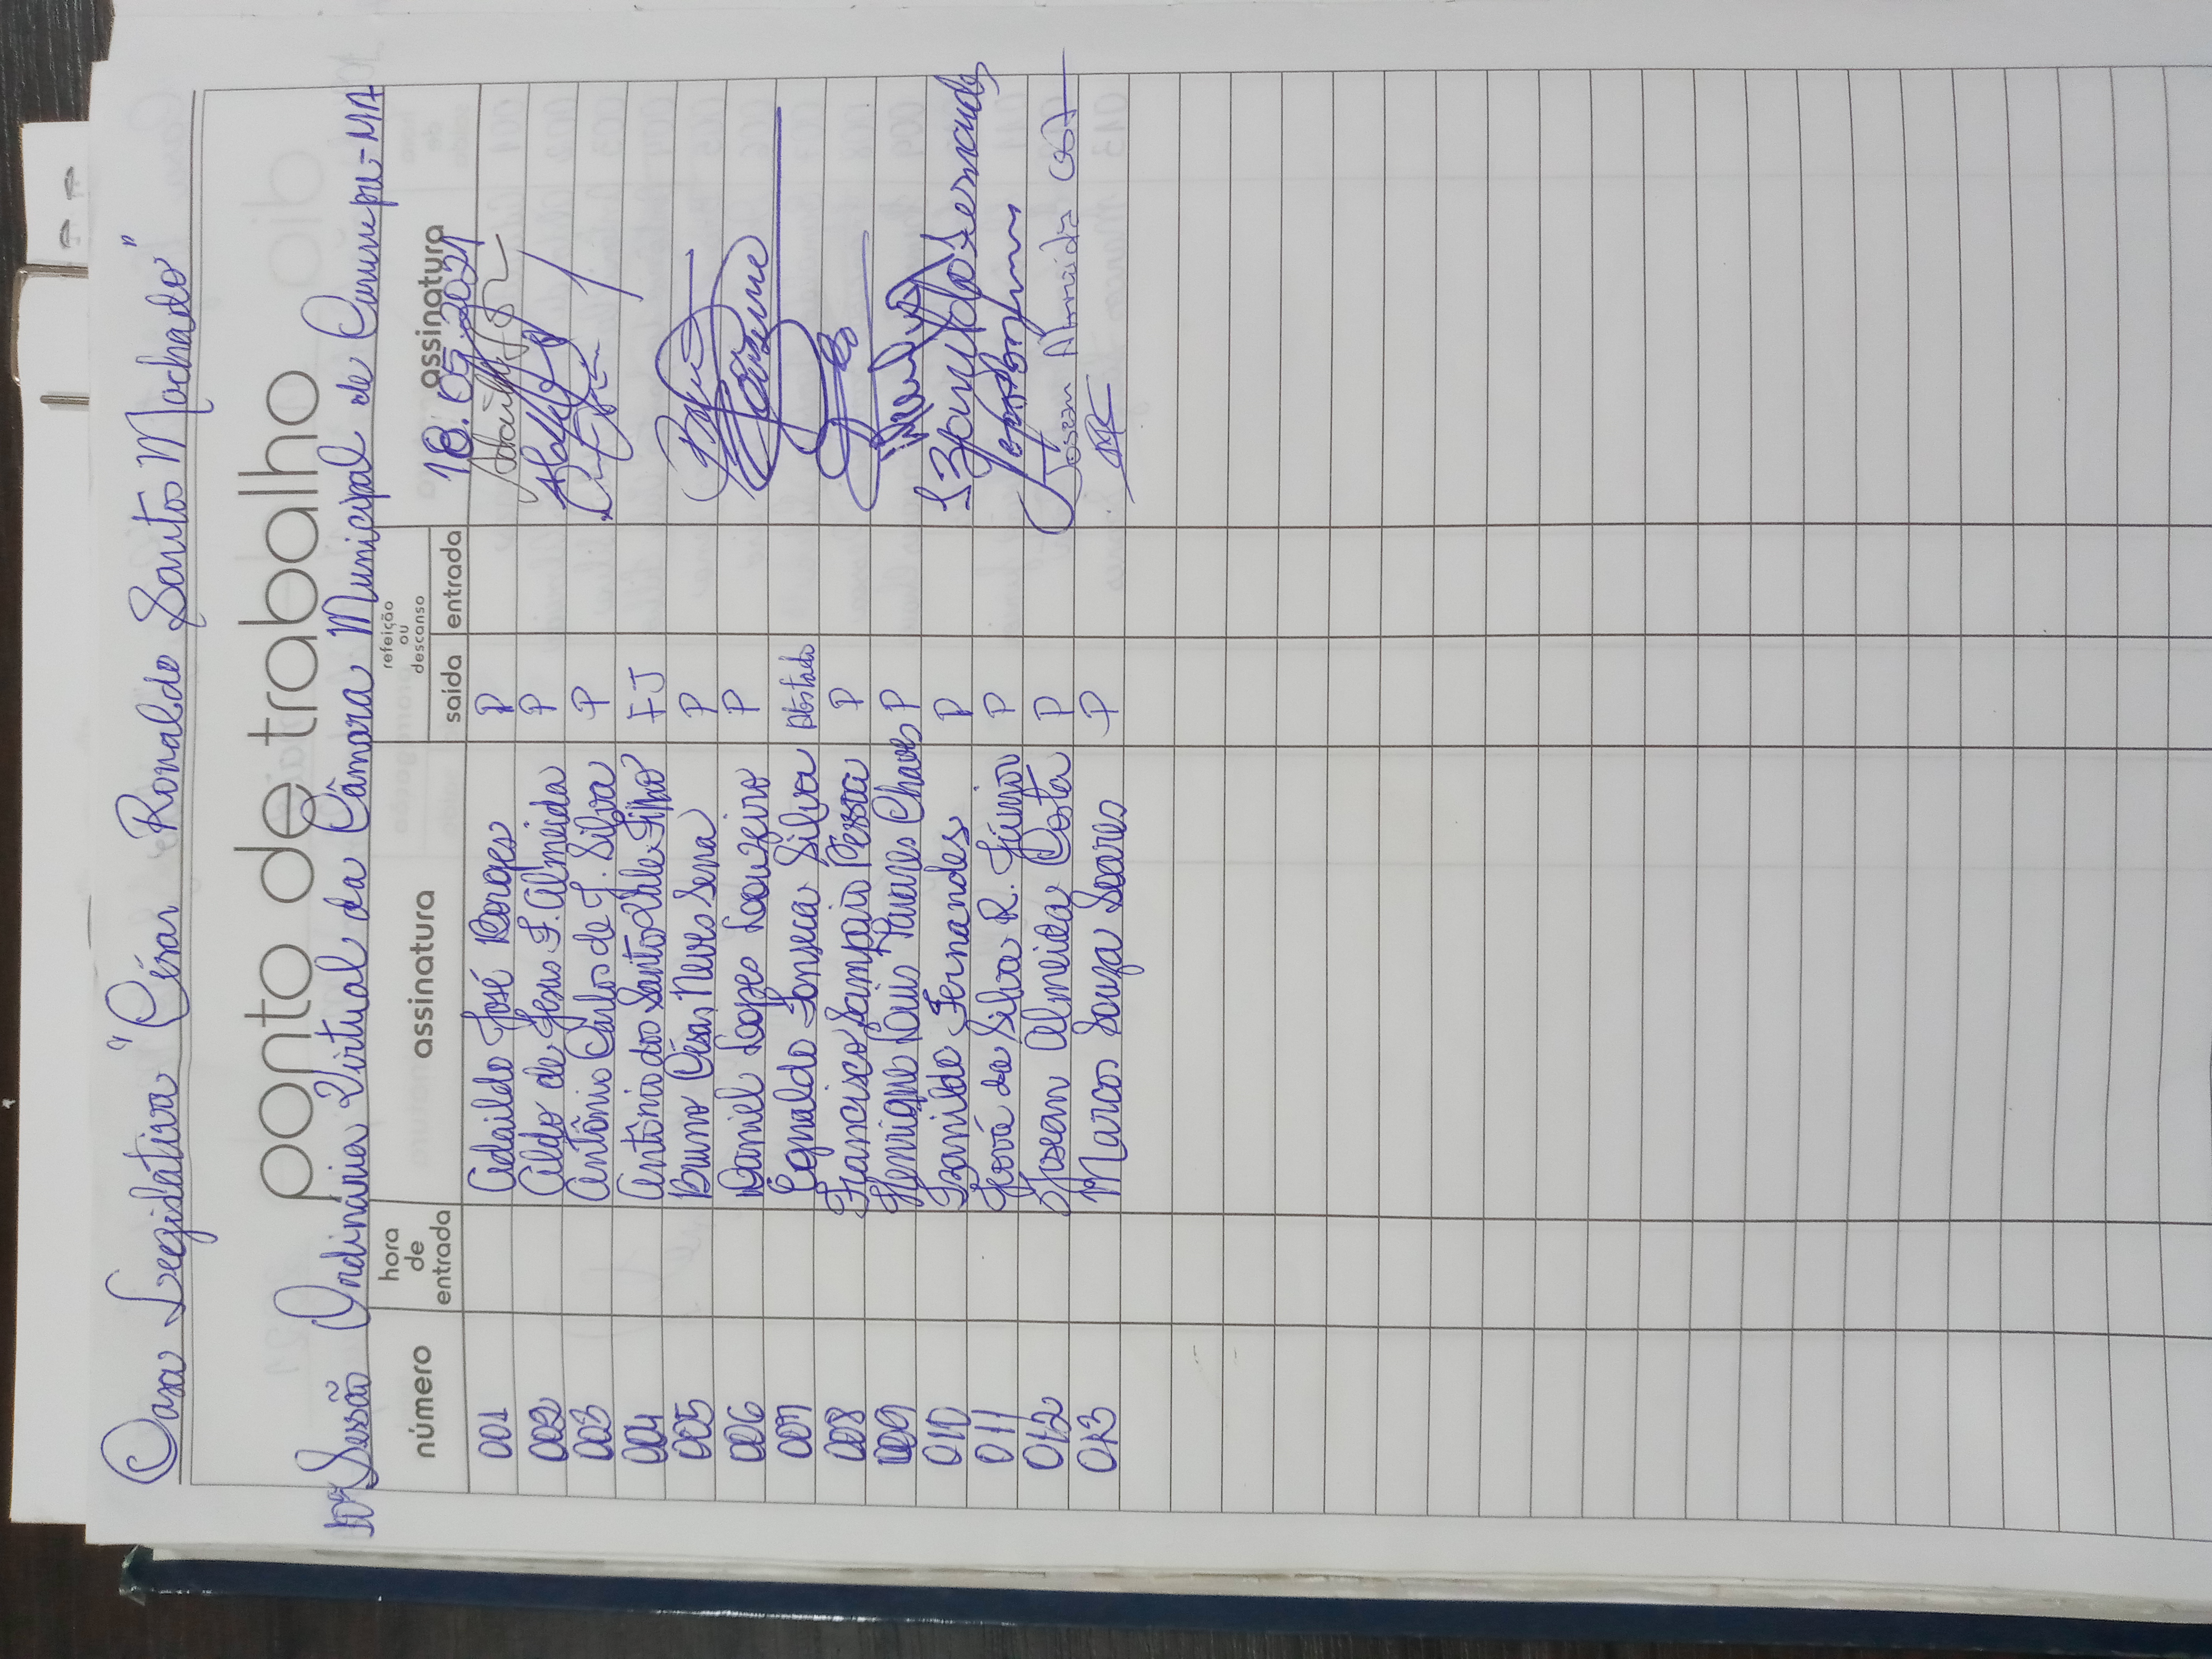 Casa Legislativa "César Ronaldo Santos Machado"
ponto de trabalho
10ª Sessão Ordinária Virtual da Câmara Municipal de Cururupu-MA
número hora de entrada assinatura refeição ou descanso saída entrada assinatura
18.05.2021
001 Adaildo José Borges P
002 Aldo de Jesus F. Almeida P
003 Antônio Carlos de J. Silva P
004 Antônio dos Santos Vale Filho FJ
005 Bruno César Neves Sena P
006 Daniel Lopes Louzeiro P
007 Egnaldo Fonseca Silva Afastado
008 Francisco Sampaio Pessoa P
009 Henrique Louis Tavares Chaves P
010 Izanildo Fernandes P
011 Jeová da Silva R. Júnior P
012 Josean Almeida Costa P Josean Almeida Costa
013 Marcos Souza Soares P